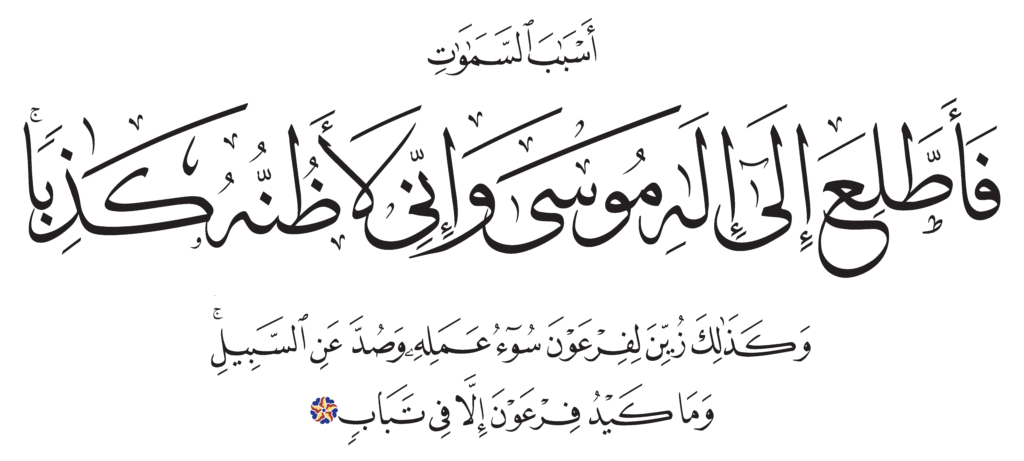 أَسْبَٰبَ ٱلسَّمَٰوَٰتِ
فَأَطَّلِعَ إِلَىٰٓ إِلَٰهِ مُوسَىٰ وَإِنِّى لَأَظُنُّهُۥ كَٰذِبًاۚ
وَكَذَٰلِكَ زُيِّنَ لِفِرْعَوْنَ سُوٓءُ عَمَلِهِۦ وَصُدَّ عَنِ ٱلسَّبِيلِۚ
وَمَا كَيْدُ فِرْعَوْنَ إِلَّا فِى تَبَابٍ